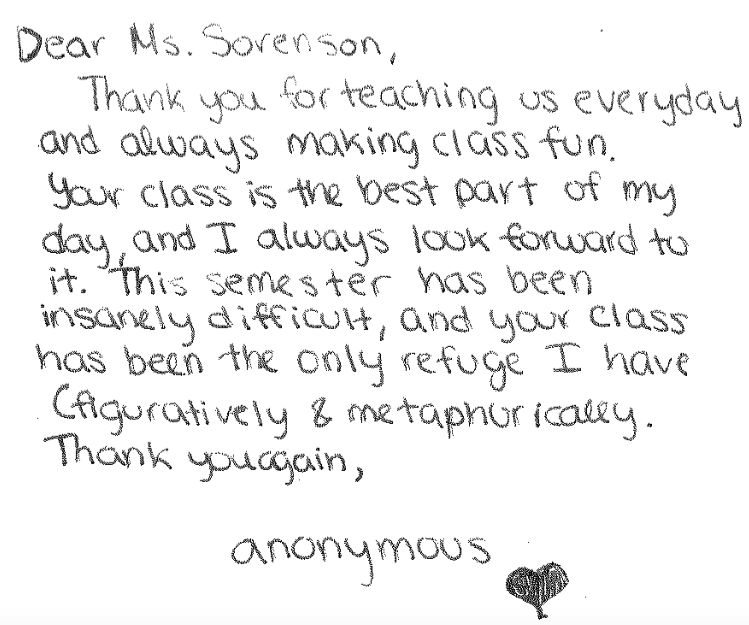 Dear Ms. Sorenson,
Thank you for teaching us everyday
and always making class fun.
Your class is the best part of my
day, and I always look forward to
it. This semester has been
insanely difficult, and your class
has been the only refuge I have
(figuratively & metaphorically.
Thank you again,
anonymous